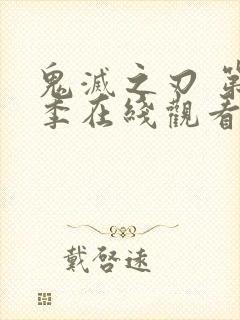 鬼滅之刃 第
季在綫觀看
戴啓遠